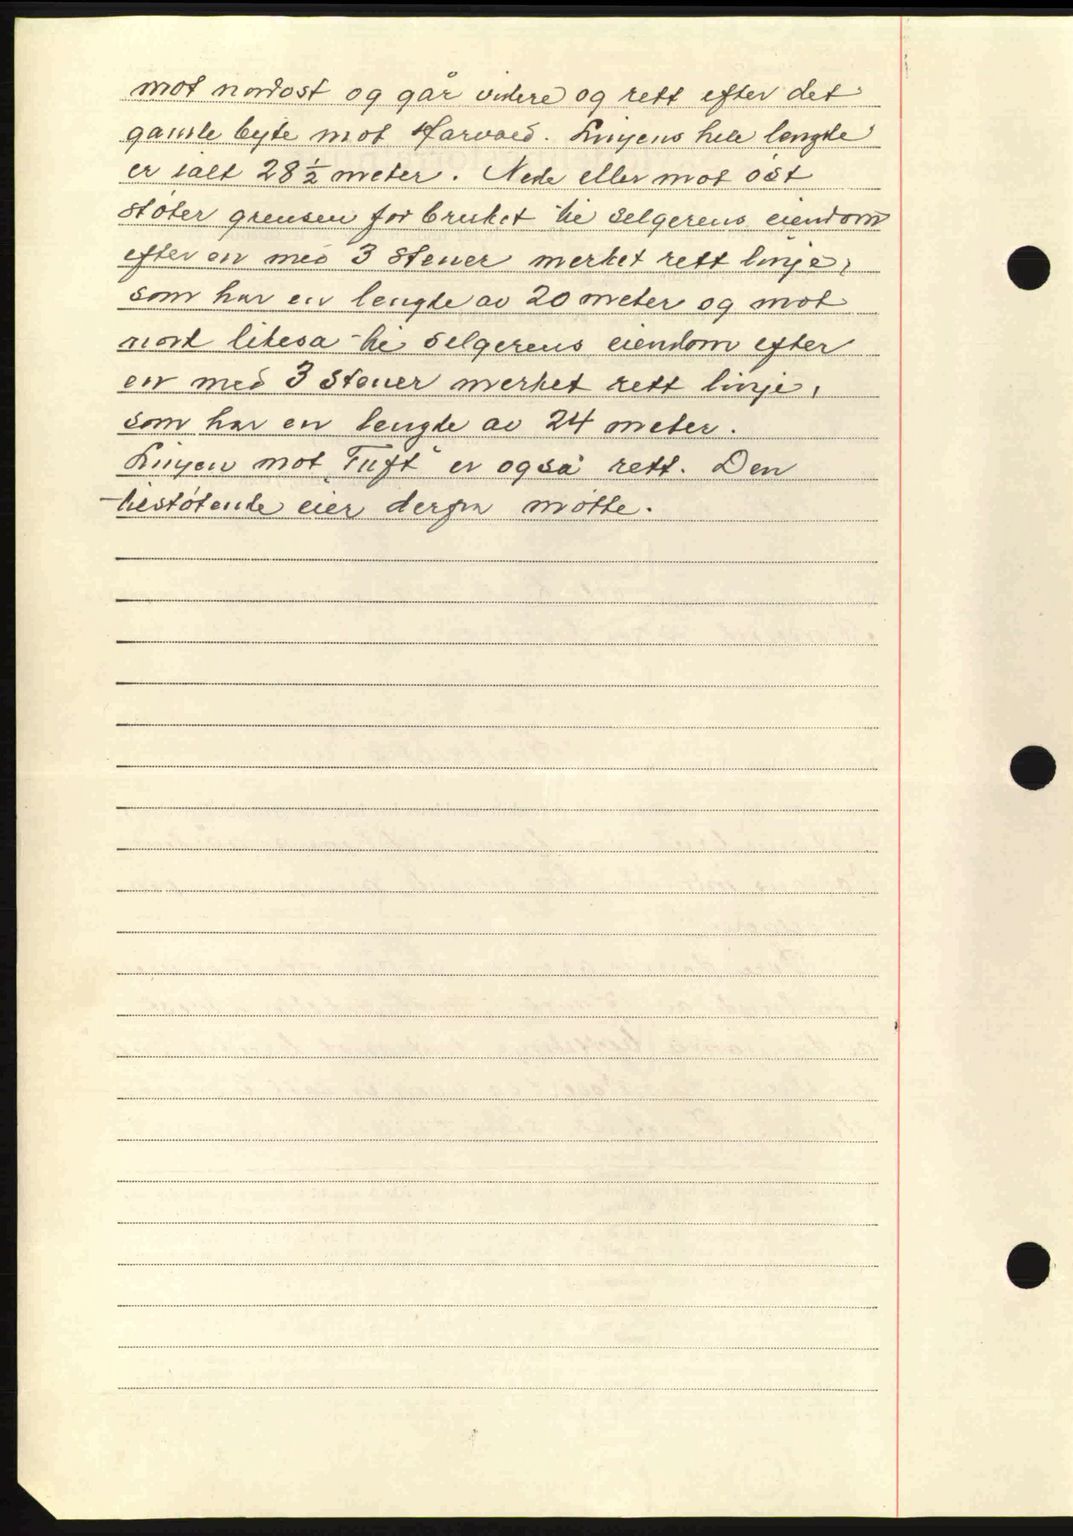 mot nordost og går videre og rett efter det
gamle byte mot Harvoed. Linjens hele lengde
er ialt 28 ½ meter. Nede eller mot öst
stöter grensen for bruket til selgerens eiendom
efter en med 3 stener merket rett linje,
som har en lengde av 20 meter og mot
nord likesa til selgerens eiendom efter
en med 3 stener merket rett linje,
som har en lengde av 24 meter.
Linjen mot "Tuft" er også rett. Den
tilstötende eier derfra mötte.